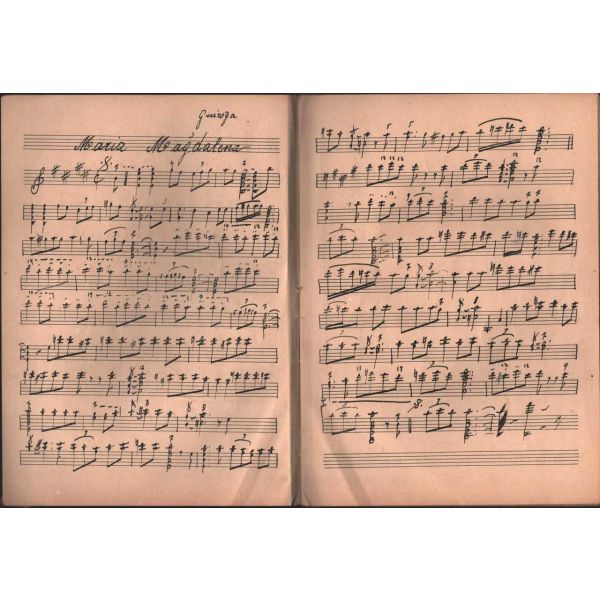 Quiroga
Maria Magdalena